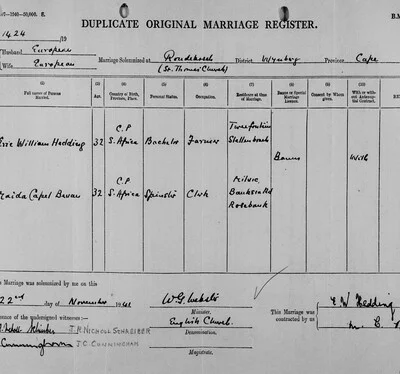 1940—50,000. S.
DUPLICATE ORIGINAL MARRIAGE REGISTER.
B.M
1424 /19
Husband European
Wife European
Marriage Solemnized at Rondebosch District Wynberg Province Cape
(St. Thomas' Church)
Full names of Persons Married. Age. Country of Birth, Province, Place. Personal Status. Occupation. Residence at time of Marriage. Banns or Special Marriage Licence. Consent by Whom given. With or without Antenuptial Contract.
Eric William Hedding 32 C.P. S. Africa Bachelor Farmer Tweefontein Stellenbosch
Banns With
Maida Capel Bevan 32 C.P. S. Africa Spinster Clerk Banksia Rd Rosebank
This Marriage was solemnized by me on this
22nd day of November 1941
W G Webster
Minister.
English Church.
Denomination.
Magistrate.
presence of the undersigned witnesses :—
J.R NICHOLL SCHREIBER
Cunningham J C CUNNINGHAM
This Marriage was contracted by us
E W Hedding
M C